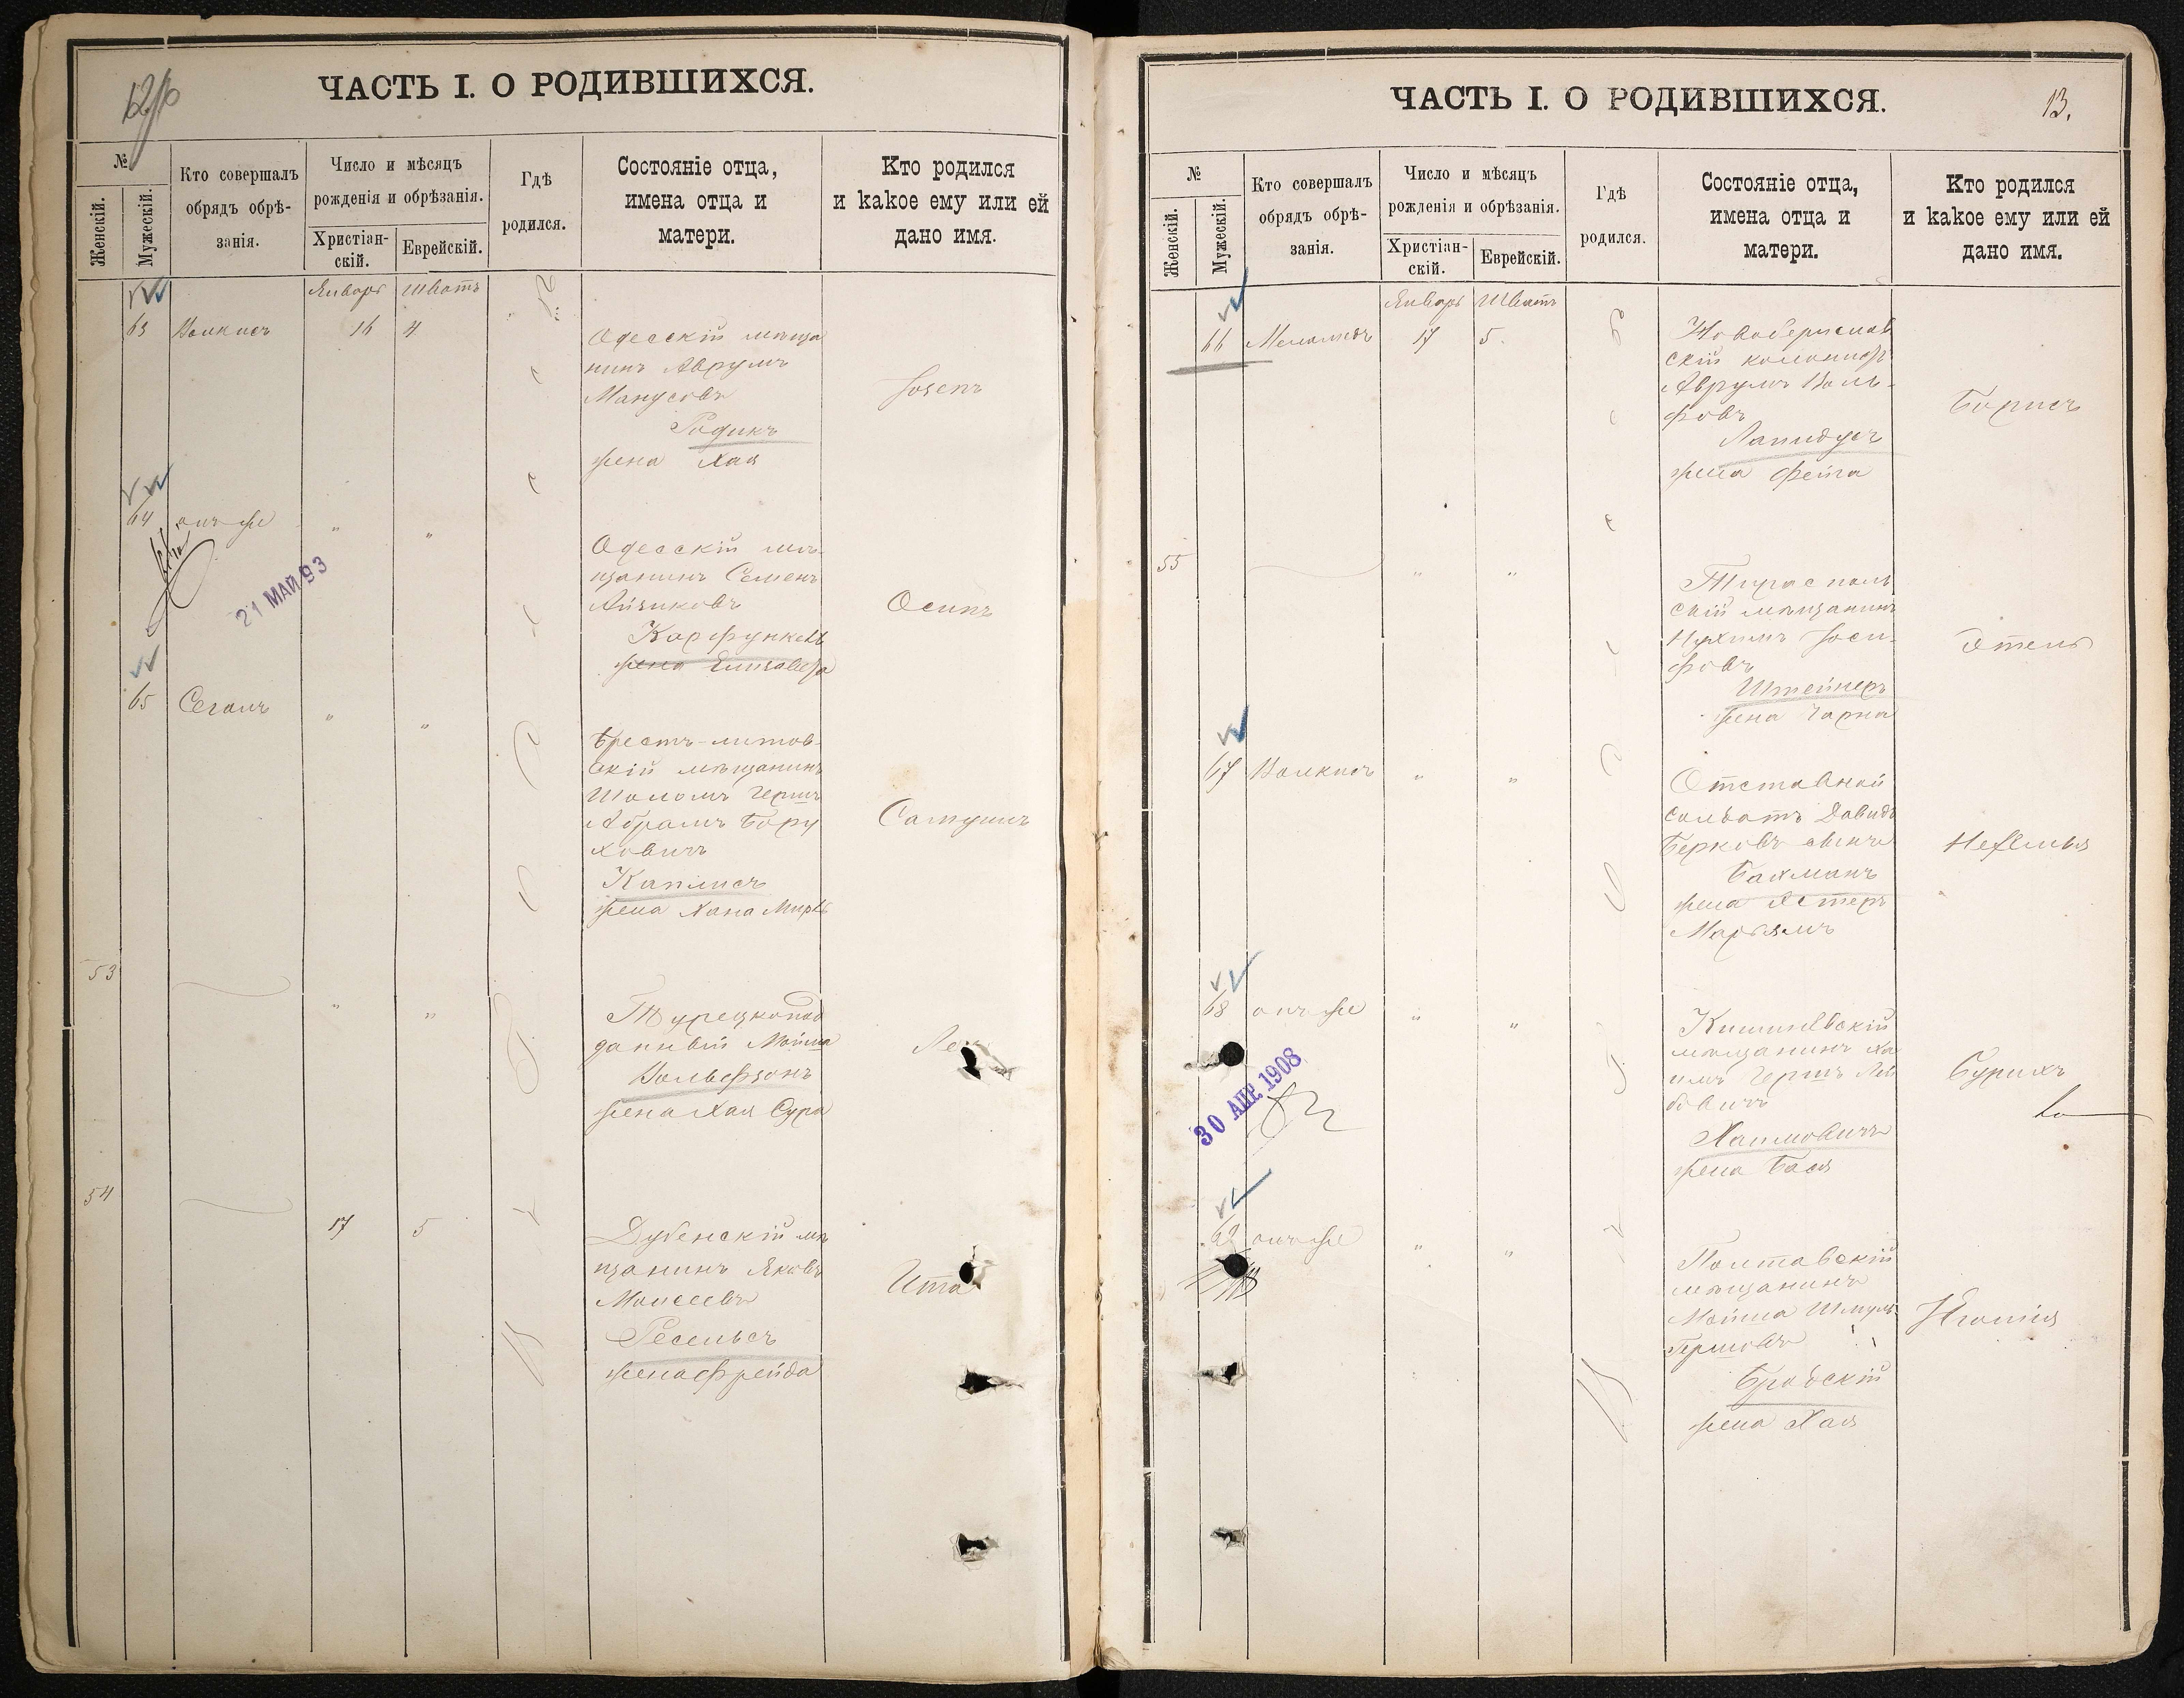 ЧАСТЬ I. О РОДИВШИХСЯ.
№
Женскій.
Мужескій.
Кто совершалъ
обрядъ обрѣ-
занія.
Число и мѣсяцъ
рожденія и обрѣзанія.
Христіан-
скій.
Еврейскій.
Гдѣ
родился.
Состояніе отца,
имена отца и
матери.
Кто родился
и какое ему или ей
дано имя.
Январь Шватъ
63 Волкисъ 16 4
Одесскій мѣща
нинъ Аврумъ
Манусовъ
Родикъ
жена Хая
Іосепъ
64 онъ же " "
21 МАЙ 93
Одесскій мѣ-
щанинъ Семенъ
Айзиковъ
Карфункель
жена Елизавета
Осипъ
65 Сеганъ " "
Брестъ-литов-
скій мѣщанинъ
Шоломъ Герш
Абрамъ Бору
ховичъ
Каплисъ
жена Хана Мирль
Самуилъ
53 " "
Турецкопод
данный Мойша
Вольфзонъ
жена Хая Сура
54 17 5
Дубенскій мѣ
щанинъ Яковъ
Моисеевъ
Гесельсъ
жена Фрейда
Ита
ЧАСТЬ I. О РОДИВШИХСЯ.
13.
№
Женскій.
Мужескій.
Кто совершалъ
обрядъ обрѣ-
занія.
Число и мѣсяцъ
рожденія и обрѣзанія.
Христіан-
скій.
Еврейскій.
Гдѣ
родился.
Состояніе отца,
имена отца и
матери.
Кто родился
и какое ему или ей
дано имя.
Январь Шватъ
66 Меламедъ 17 5.
Новоберислав
скій колонистъ
Аврумъ Воль-
фовъ
Лапидусъ
жена Фейга
Борисъ
55 " "
Тирасполь
скій мѣщанинъ
Нухимъ Іоси-
фовъ
Штейнеръ
жена Чарна
Этель
67 Волкисъ " "
Отставной
солдатъ Давидъ
Берковъ сынъ
Бахманъ
жена Эстеръ
Марьямъ
68 онъ же " "
30 АПР. 1908
Кишиневскій
мѣщанинъ Ха
имъ Гершъ Лей
бовичъ
Хаимовичъ
жена Бася
Бурихъ
69 онъ же " "
Полтавскій
мѣщанинъ
Мойша Шмуль
Гершовъ
Бродскій
жена Хая